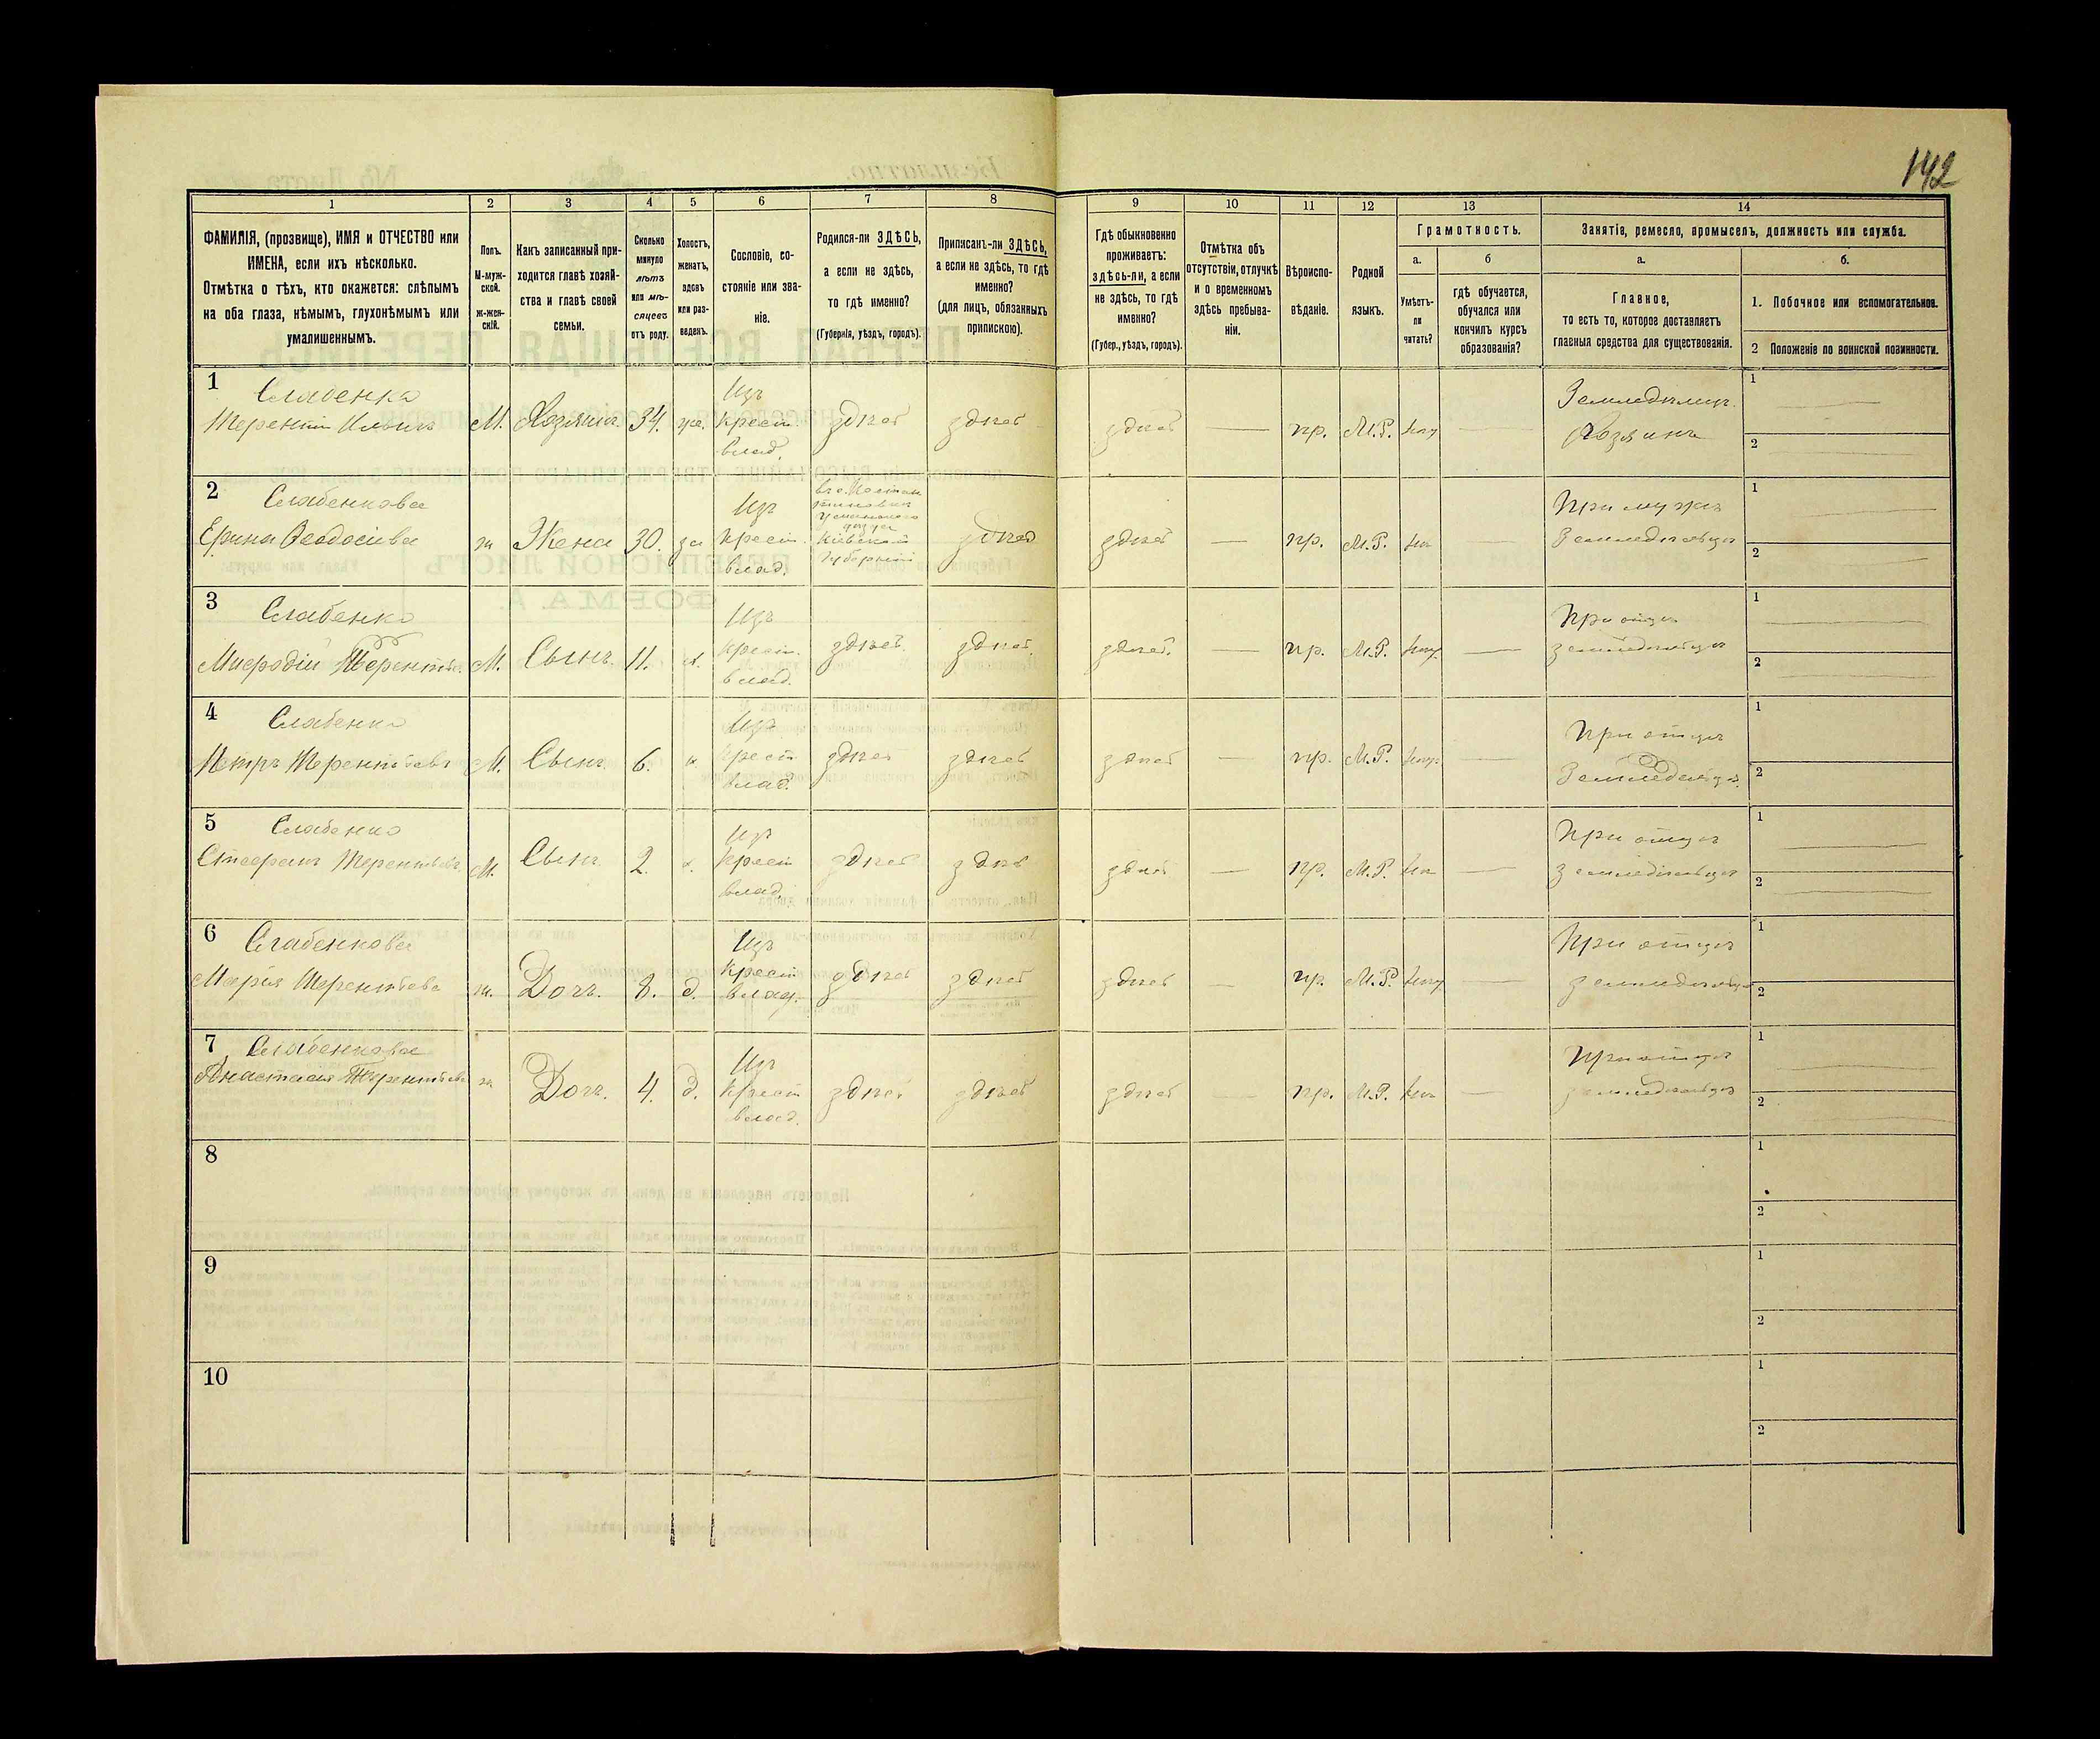 142
1
2
3
4
5
6
7
8
9
10
11
12
13
14
ФАМИЛІЯ, (прозвище), ИМЯ и ОТЧЕСТВО или
ИМЕНА, если ихъ нѣсколько.
Отмѣтка о тѣхъ, кто окажется: слѣпымъ
на оба глаза, нѣмымъ, глухонѣмымъ или
умалишеннымъ.
Полъ.
М-муж-
ской.
ж-жен-
скій.
Какъ записанный при-
ходится главѣ хозяй-
ства и главѣ своей
семьи.
Сколько
минуло
лѣтъ
или мѣ-
сяцевъ
отъ роду.
Холостъ,
женатъ,
вдовъ
или раз-
веденъ.
Сословіе, со-
стояніе или зва-
ніе.
Родился-ли ЗДѢСЬ,
а если не здѣсь,
то гдѣ именно?
(Губернія, уѣздъ, городъ).
Приписанъ-ли ЗДѢСЬ,
а если не здѣсь, то гдѣ
именно?
(для лицъ, обязанныхъ
припискою).
Гдѣ обыкновенно
проживаетъ:
здѣсь-ли, а если
не здѣсь, то гдѣ
именно?
(Губер., уѣздъ, городъ).
Отмѣтка объ
отсутствіи, отлучкѣ
и о временномъ
здѣсь пребыва-
ніи.
Вѣроиспо-
вѣданіе.
Родной
языкъ.
Грамотность.
а.
Умѣетъ-
ли
читать?
б
гдѣ обучается,
обучался или
кончилъ курсъ
образованія?
Занятіе, ремесло, промыселъ, должность или служба.
а.
Главное,
то есть то, которое доставляетъ
главныя средства для существованія.
б.
1. Побочное или вспомогательное.
2 Положеніе по воинской повинности.
1
Слабенко
Терентій Ильичъ
М.
Хозяинъ.
34.
же.
Изъ
крест.
влад.
здѣсь
здѣсь
здѣсь
пр.
М.Р.
Земледѣлецъ.
Хозяинъ
1
2
2
Слабенкова
Ерина Ѳеодосіева
Жена
30.
за
Изъ
Крест.
влад.
Кіевской
Губерніи
здѣсь
здѣсь
пр.
М.Р.
При мужѣ
земледѣльцѣ
1
2
3
Слабенко
Терентьев.
М.
Сынъ.
11.
х.
Изъ
крест.
влад.
здѣсь.
здѣсь.
здѣсь.
пр.
М.Р.
При отцѣ
земледѣльцѣ
1
2
4
Слабенко
Петръ Терентьевъ
М.
Сынъ.
6.
х
Изъ
крест
влад.
здѣсь
здѣсь
здѣсь
пр.
М.Р.
При отцѣ
Земледѣльцѣ.
1
2
5
Слабенко
Стефанъ Терентьевъ
М.
Сынъ.
2.
х.
Изъ
Крест
влад.
здѣсь
здѣсь
здѣсь
пр.
М.Р.
При отцѣ
земледѣльцѣ
1
2
6
Слабенкова
Марія Терентьева
ж.
Дочь.
8.
д.
Изъ
Крест
влад.
здѣсь
здѣсь
здѣсь
пр.
М.Р.
При отцѣ
земледѣльцѣ
1
2
7
Слабенкова
Анастасія Терентьева
ж
Дочь.
4.
д.
Изъ
Крест
влад.
здѣсь
здѣсь
здѣсь
пр.
М.Р.
При отцѣ
земледѣльцѣ
1
2
8
1
2
9
1
2
10
1
2